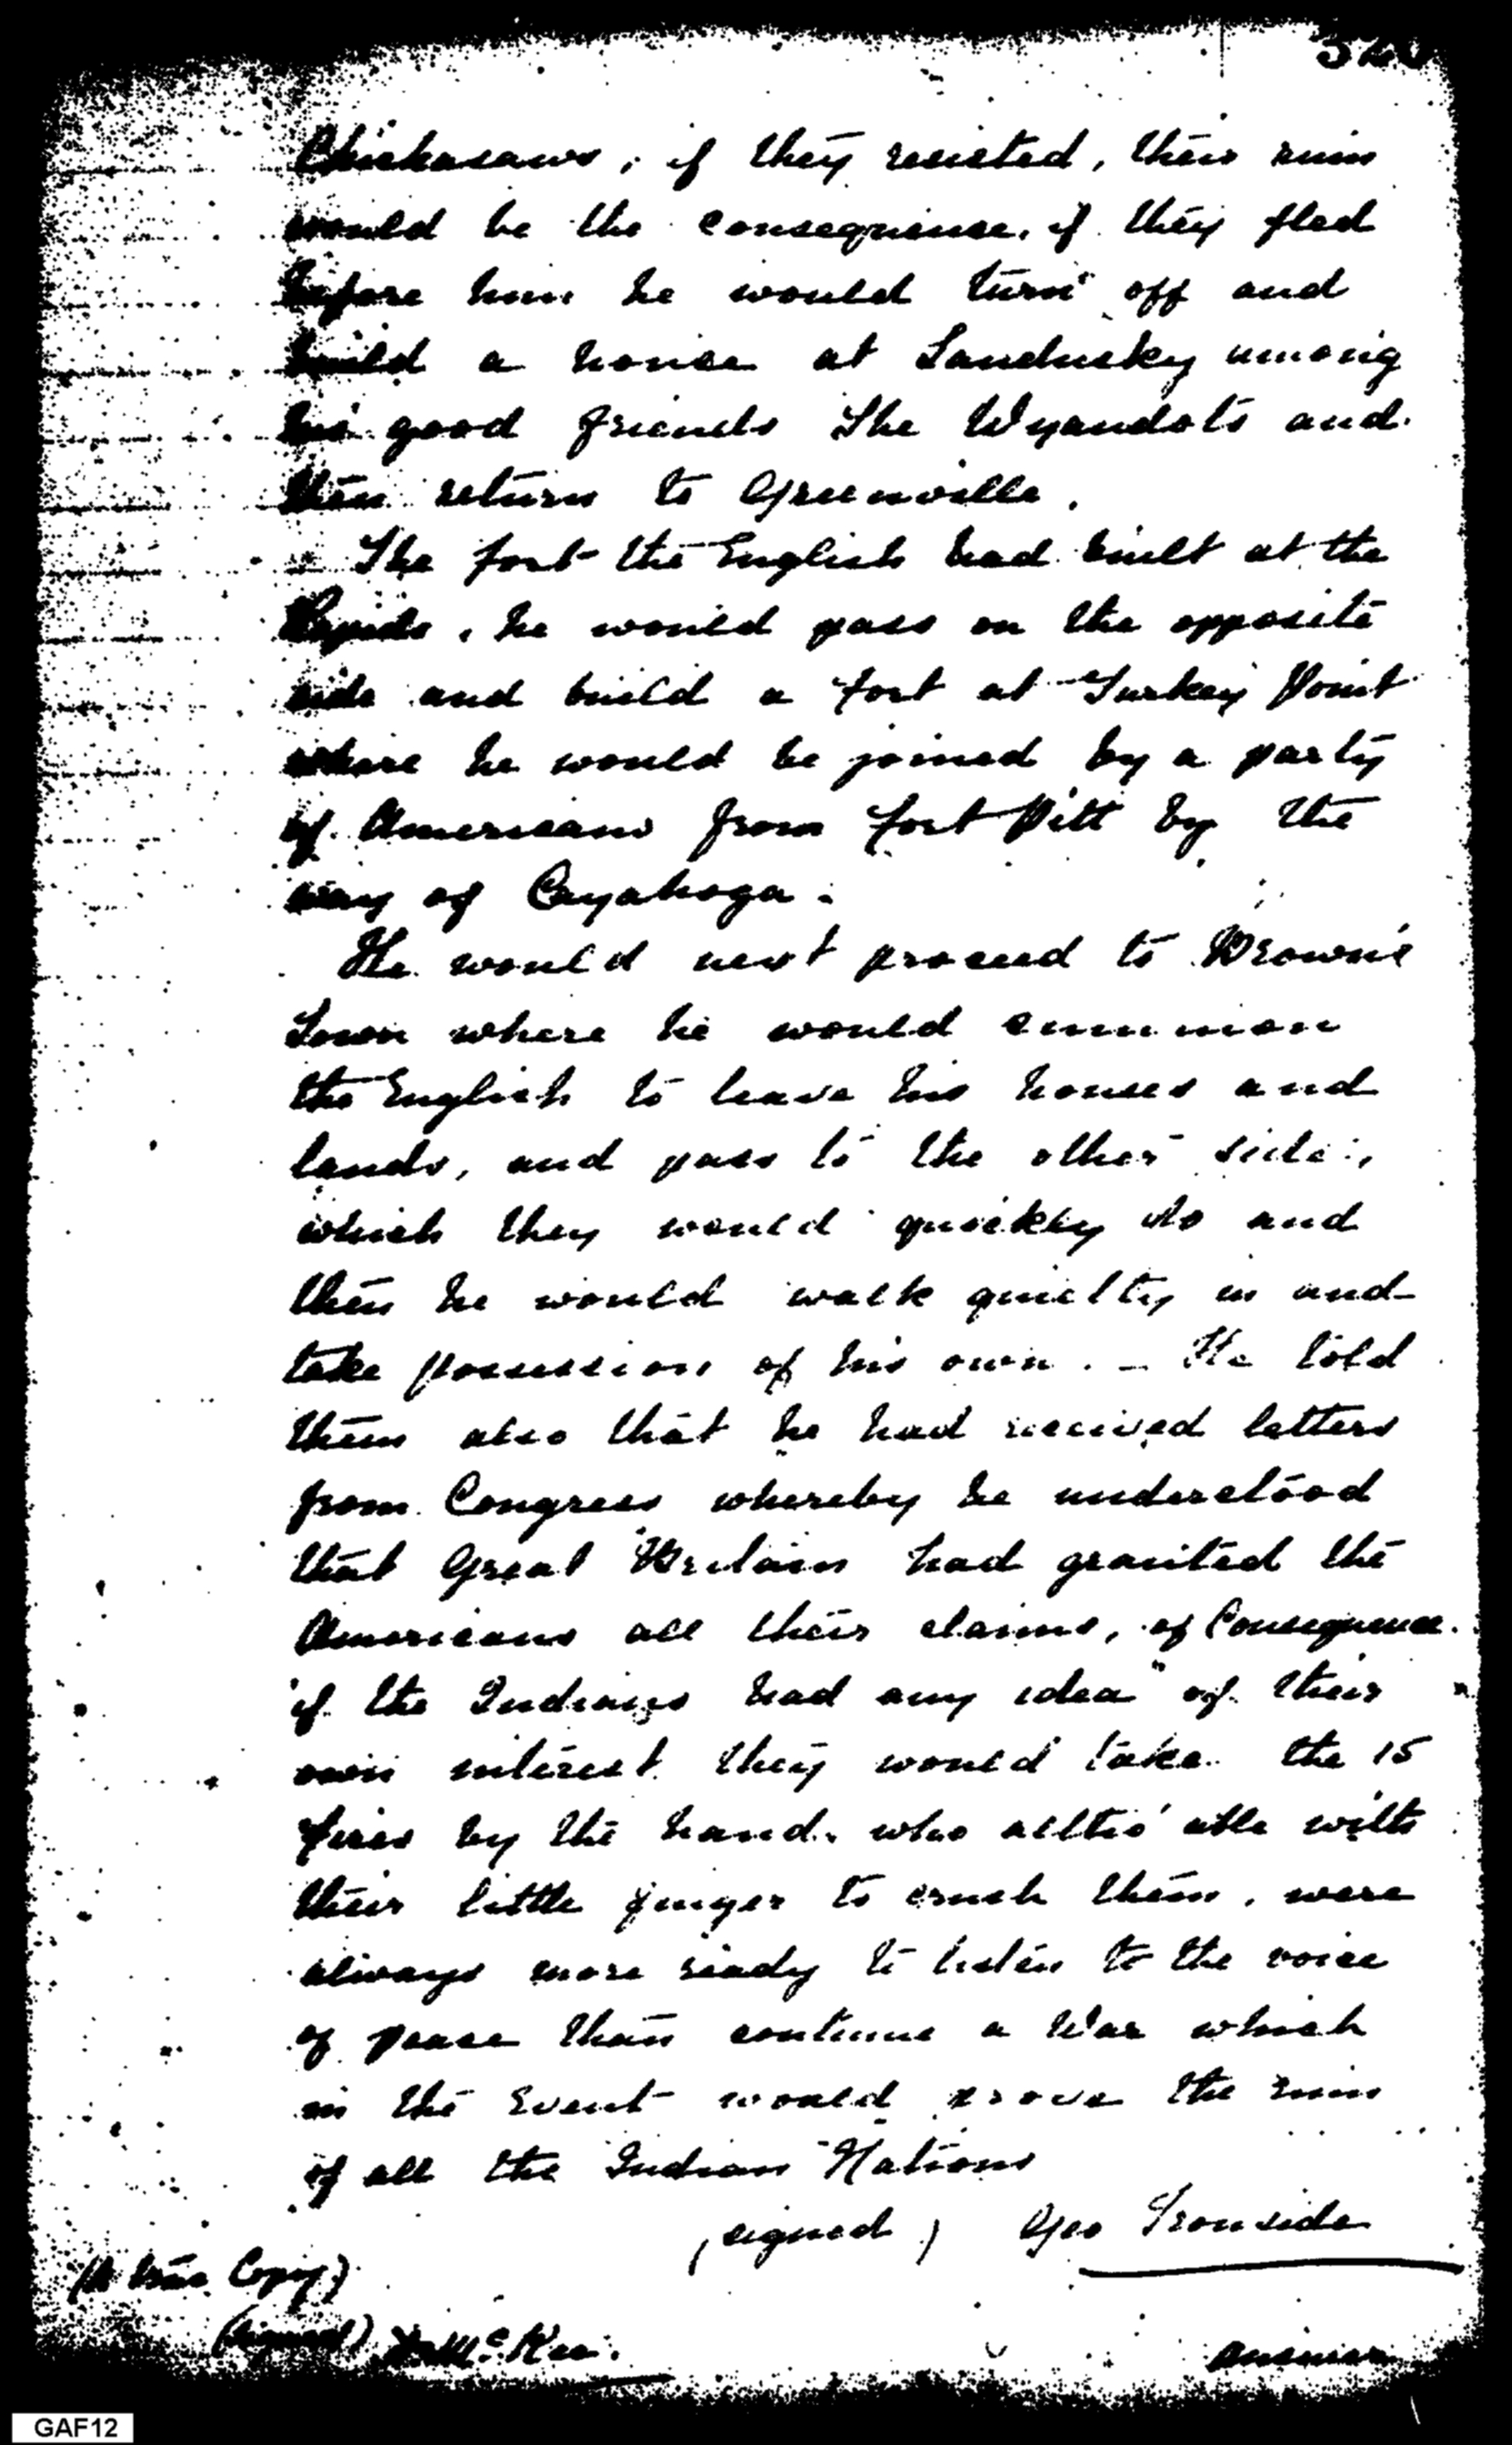 Chickasaws, if they resisted, their ruin
would be the consequense, if they fled
before him he would turn off and
build a house at Sandusky among
his good friends The Wyandots and
then return to Greenville.
The fort the English had built at the
Rapids, he would pass on the opposite
side and build a fort at Turkey Point
where he would be joined by a party
of Americans from Fort Pitt by the
way of Cayahoga.
He would next proceed to Brown's
Town where he would summon
the English to leave his houses and
lands, and pass to the other side,
which they would quickly do and
then he would walk quietly in and
take possession of his own. - He told
them also that he had received letters
from Congress whereby he understood
that Great Britain had granted the
Americans all their claims, of Consequence
if the Indians had any idea of their
own interest they would take the 15
fires by the hand, who altho' able with
their little finger to crush them, were
always more ready to listen to the voice
of peace than continue a War which
in the Event would prove the ruin
of all the Indian Nations
(signed) Geo Ironside
(A true Copy)
(signed) McKee.
answer
GAF12